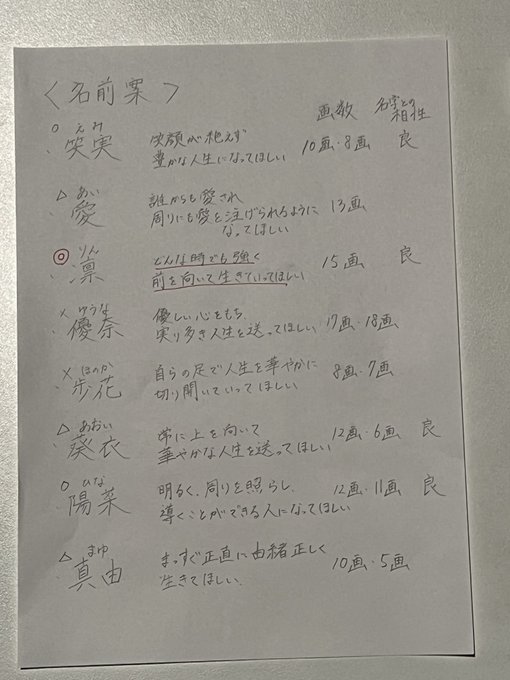 〈名前案〉
画数 名字との相性
○ えみ
・笑実 笑顔が絶えず
豊かな人生になってほしい 10画・8画 良
△ あい
・愛 誰からも愛され
周りにも愛を注げられるように 13画
なってほしい
◎ りん
・凛 どんな時でも強く
前を向いて生きていってほしい 15画 良
× ゆうな
・優奈 優しい心をもち、
実り多き人生を送ってほしい 17画・18画
× ほのか
・歩花 自らの足で人生を華やかに
切り開いていってほしい 8画・7画
△ あおい
・葵衣 常に上を向いて
華やかな人生を送ってほしい 12画・6画 良
○ ひな
・陽菜 明るく、周りを照らし、
導くことができる人になってほしい 12画・11画 良
△ まゆ
・真由 まっすぐ正直に由緒正しく
生きてほしい、 10画・5画